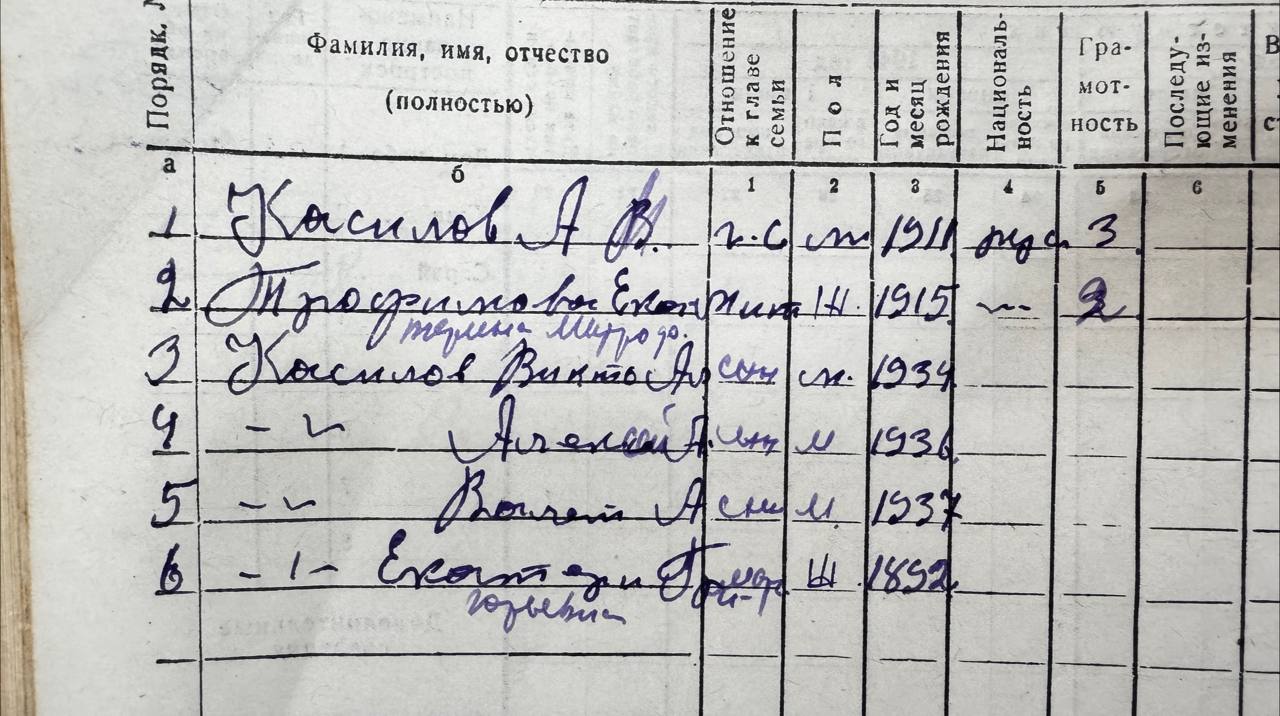 Порядк. №
Фамилия, имя, отчество
(полностью)
Отношение
к главе
семьи
Пол
Год и
месяц
рождения
Националь-
ность
Гра-
мот-
ность
Последу-
ющие из-
менения
а б 1 2 3 4 5 6
1 Касилов А В. г.с м 1911 3
2 Трофимова Екат Ж. 1915 -"- 2
терина Митродо.
3 Касилов Викто Ал сын м. 1934
4 -"- Алексей А. сын м 1936
5 -"- А сын м 1937
6 -"- Екатери Григ Ж 1892
горьевна